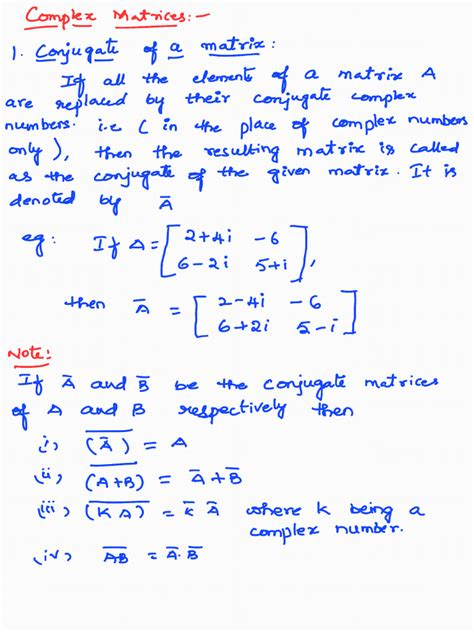 Complex Matrices:-
1. Conjugate of a matrix:
If all the elements of a matrix A
are replaced by their conjugate complex
numbers. i.e ( in the place of complex numbers
only ), then the resulting matrix is called
as the conjugate of the given matrix. It is
denoted by Ā
eg: If A = [ 2+4i  -6
6-2i  5+i ],
then Ā = [ 2-4i  -6
6+2i  5-i ]
Note:
If Ā and B̅ be the conjugate matrices
of A and B respectively then
i) \overline{(Ā)} = A
ii) \overline{(A+B)} = Ā+B̅
iii) \overline{(KA)} = k̅ Ā where k being a
complex number.
iv) \overline{AB} = Ā·B̅